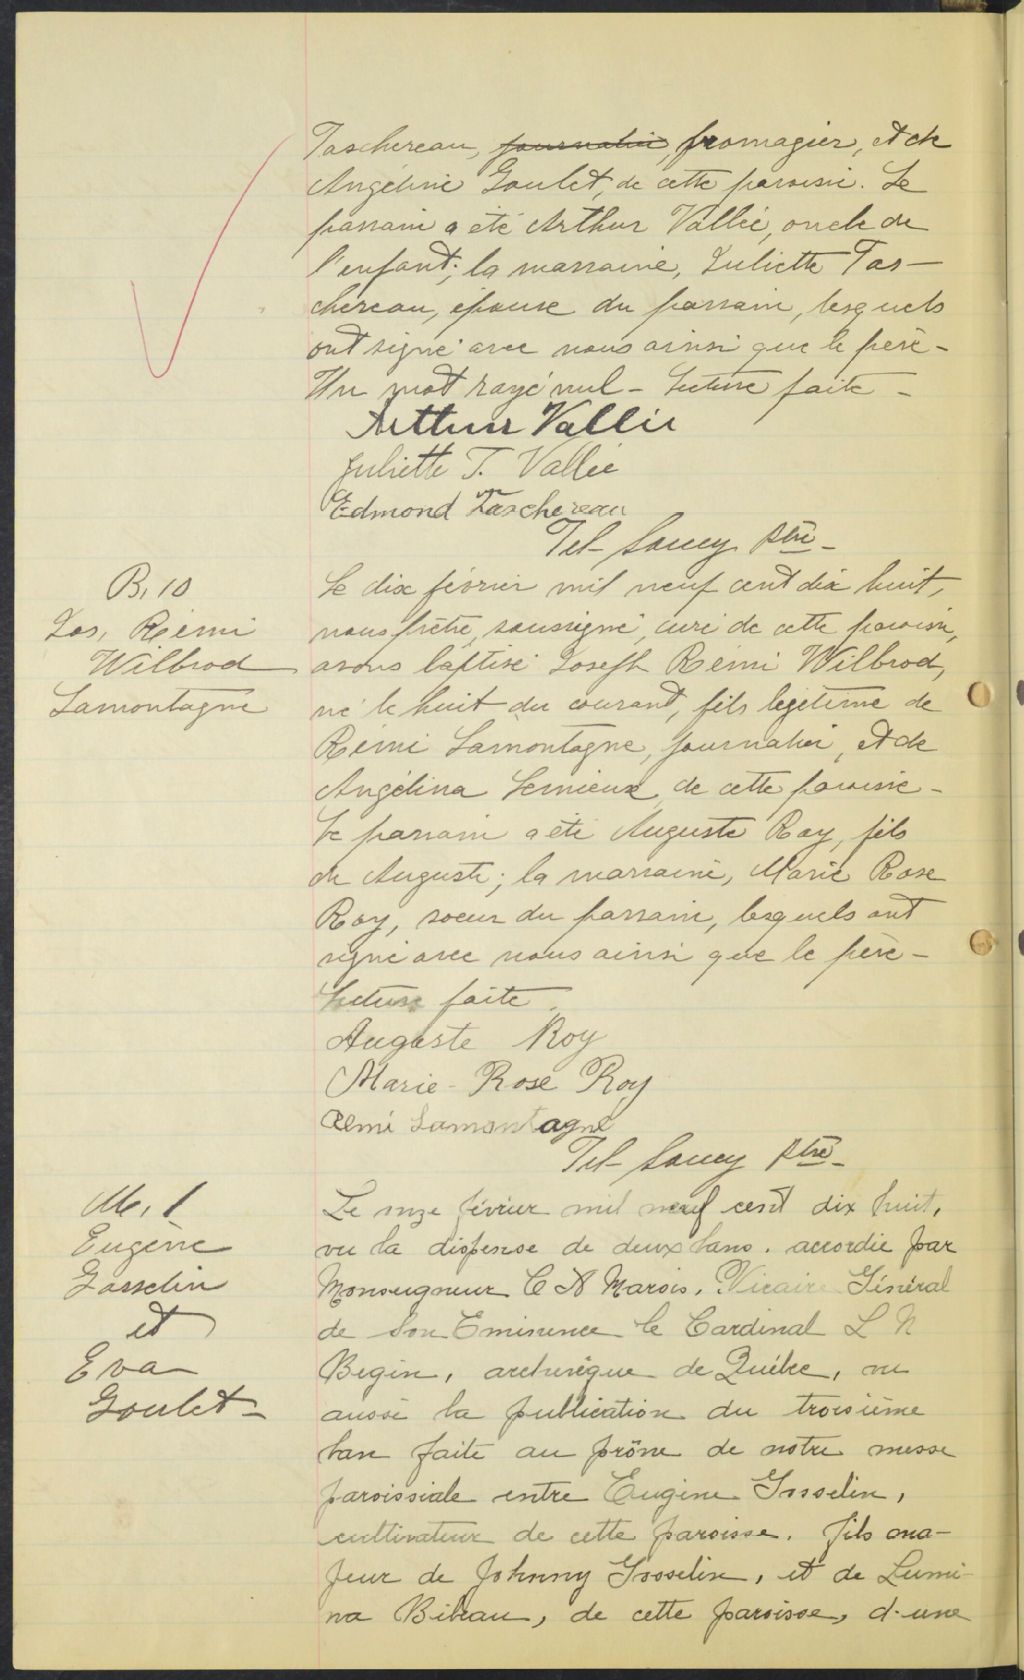 Taschereau, journalier, fromagier, et de
Angéline Goulet, de cette paroisse. Le
parrain a été Arthur Vallée, oncle de
l'enfant; la marraine, Juliette Tas-
chereau, épouse du parrain, lesquels
ont signé avec nous ainsi que le père -
Un mot rayé nul - Lecture faite -
Arthur Vallée
Juliette T. Vallée
Edmond Taschereau
Tel. Soucy Ptre -
B. 10
Jos, Rémi
Wilbrod
Lamontagne
Le dix février mil neuf cent dix huit,
nous prêtre, soussigné, curé de cette paroisse,
avons baptisé Joseph Rémi Wilbrod,
né le huit du courant, fils légitime de
Rémi Lamontagne, journalier, et de
Angélina Lemieux, de cette paroisse -
Le parrain a été Auguste Roy, fils
de Auguste; la marraine, Marie Rose
Roy, soeur du parrain, lesquels ont
signé avec nous ainsi que le père -
Lecture faite.
Auguste Roy
Marie-Rose Roy
Remi Lamontagne
Tel. Soucy Ptre -
M. 1
Eugène
Gosselin
et
Eva
Goulet -
Le onze février mil neuf cent dix huit,
vu la dispense de deux bans. accordée par
Monseigneur C A Marois, Vicaire Général
de Son Eminence le Cardinal L N
Begin, archevêque de Québec, vu
aussi la publication du troisième
ban faite au prône de notre messe
paroissiale entre Eugène Gosselin,
cultivateur de cette paroisse, fils ma-
jeur de Johnny Gosselin, et de Lumi-
na Bibeau, de cette paroisse, d'une